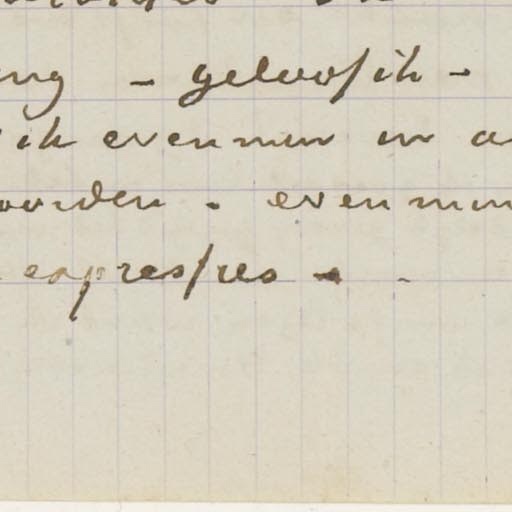 ng - geloof ik -
ik evenmin in a
oorden. evenmin
expresses -